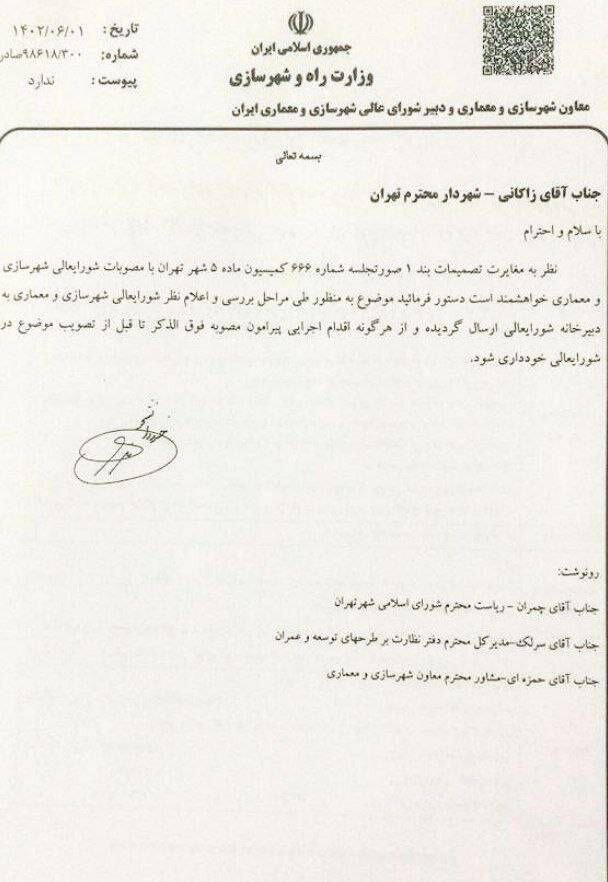 تاریخ : ۱۴۰۲/۰۶/۰۱
شماره: ۹۸۶۱۸/۳۰۰صادر
پیوست : ندارد
جمهوری اسلامی ایران
وزارت راه و شهرسازی
معاون شهرسازی و معماری و دبیر شورای عالی شهرسازی و معماری ایران
بسمه تعالی
جناب آقای زاکانی – شهردار محترم تهران
با سلام و احترام
نظر به مغایرت تصمیمات بند ۱ صورتجلسه شماره ۶۶۶ کمیسیون ماده ۵ شهر تهران با مصوبات شورایعالی شهرسازی
و معماری خواهشمند است دستور فرمائید موضوع به منظور طی مراحل بررسی و اعلام نظر شورایعالی شهرسازی و معماری به
دبیرخانه شورایعالی ارسال گردیده و از هرگونه اقدام اجرایی پیرامون مصوبه فوق الذکر تا قبل از تصویب موضوع در
شورایعالی خودداری شود.
رونوشت:
جناب آقای چمران – ریاست محترم شورای اسلامی شهرتهران
جناب آقای سرلک–مدیرکل محترم دفتر نظارت بر طرحهای توسعه و عمران
جناب آقای حمزه ای–مشاور محترم معاون شهرسازی و معماری